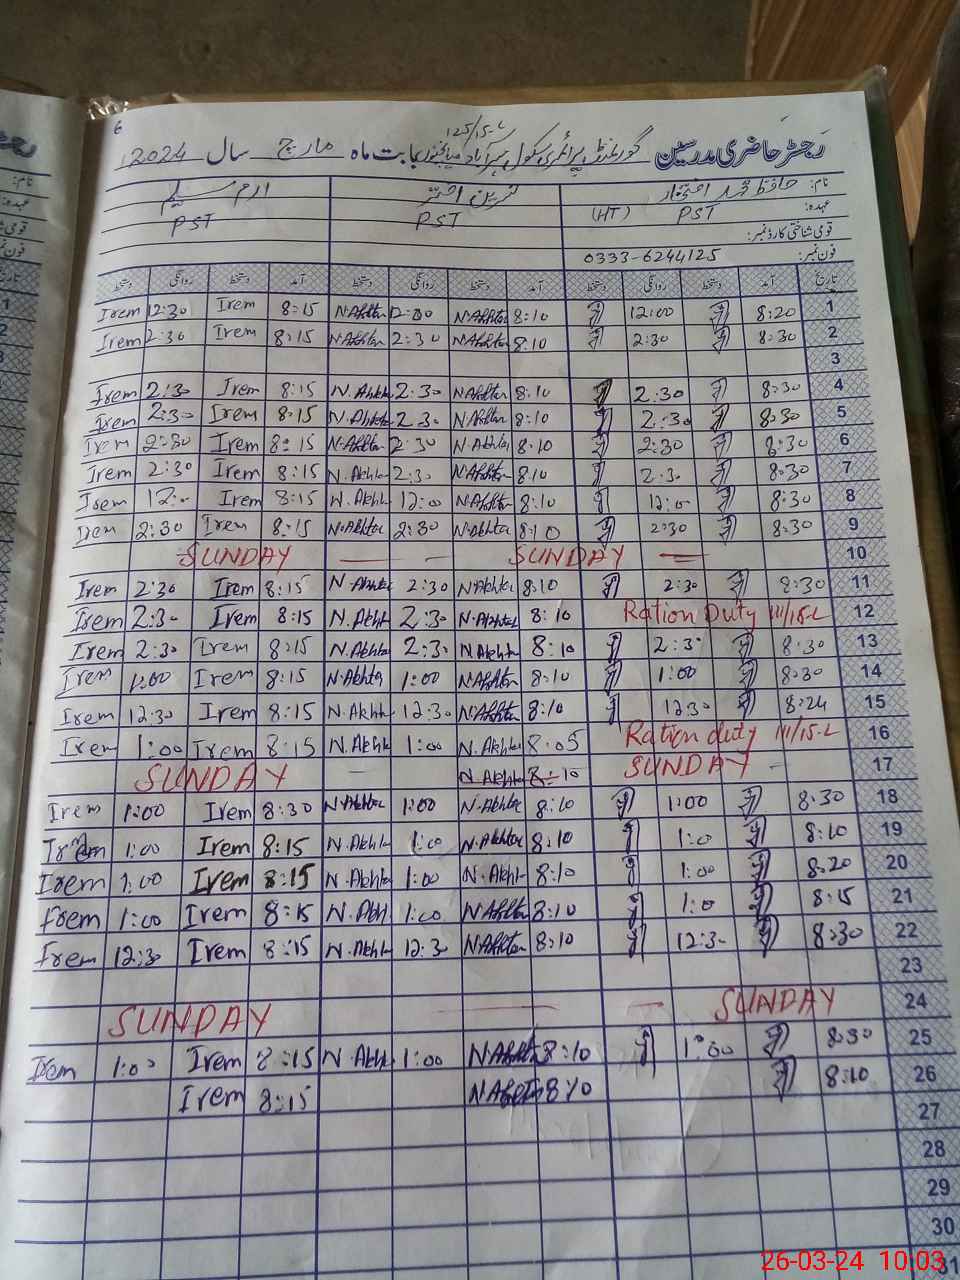 6
125/15-L
رجسٹر حاضری مدرسین گورنمنٹ پرائمری سکول بابت ماہ مارچ سال 2024
نام: حافظ محمد افتخار نسرین اختر ارم سلیم
عہدہ: PST (HT) PST PST
قومی شناختی کارڈ نمبر:
فون نمبر: 0333-6244125
تاریخ آمد دستخط روانگی دستخط آمد دستخط روانگی دستخط آمد دستخط روانگی دستخط
Irem 12:30 Irem 8:15 N.Akhtar 12:00 N.Akhtar 8:10 12:00 8:20 1
Irem 2:30 Irem 8:15 N.Akhtar 2:30 N.Akhtar 8:10 2:30 8:30 2
3
Irem 2:30 Irem 8:15 N.Akht 2:30 N.Akhtar 8:10 2:30 8:30 4
Irem 2:30 Irem 8:15 N.Akhtar 2:30 N.Akhtar 8:10 2:30 8:30 5
Irem 2:30 Irem 8:15 N.Akhtar 2:30 N.Akhtar 8:10 2:30 8:30 6
Irem 2:30 Irem 8:15 N.Akhtar 2:30 N.Akhtar 8:10 2:30 8:30 7
Irem 12:00 Irem 8:15 N.Akht 12:00 N.Akhtar 8:10 12:00 8:30 8
Irem 2:30 Irem 8:15 N.Akhtar 2:30 N.Akhtar 8:10 2:30 8:30 9
SUNDAY SUNDAY 10
Irem 2:30 Irem 8:15 N.Akhtar 2:30 N.Akhtar 8:10 2:30 8:30 11
Irem 2:30 Irem 8:15 N.Akht 2:30 N.Akhtar 8:10 Ration Duty 111/15-L 12
Irem 2:30 Irem 8:15 N.Akhta 2:30 N.Akht 8:10 2:30 8:30 13
Irem 1:00 Irem 8:15 N.Akhta 1:00 N.Akhtar 8:10 1:00 8:30 14
Irem 12:30 Irem 8:15 N.Akht 12:30 N.Akhtar 8:10 12:30 8:24 15
Irem 1:00 Irem 8:15 N.Akht 1:00 N.Akhta 8:05 Ration duty 111/15-L 16
SUNDAY N.Akhta 8:10 SUNDAY 17
Irem 1:00 Irem 8:30 N.Akhta 1:00 N.Akhta 8:10 1:00 8:30 18
Irem 1:00 Irem 8:15 N.Akht 1:00 N.Akhta 8:10 1:00 8:10 19
Irem 1:00 Irem 8:15 N.Akhta 1:00 N.Akht 8:10 1:00 8:20 20
Irem 1:00 Irem 8:15 N.Akht 1:00 N.Akhtar 8:10 1:0 8:15 21
Irem 12:30 Irem 8:15 N.Akht 12:30 N.Akhtar 8:10 12:30 8:30 22
23
SUNDAY SUNDAY 24
Irem 1:00 Irem 8:15 N.Akht 1:00 N.Akhtar 8:10 1:00 8:30 25
Irem 8:15 N.Akhtar 8:10 8:10 26
27
28
29
30
31
26-03-24 10:03